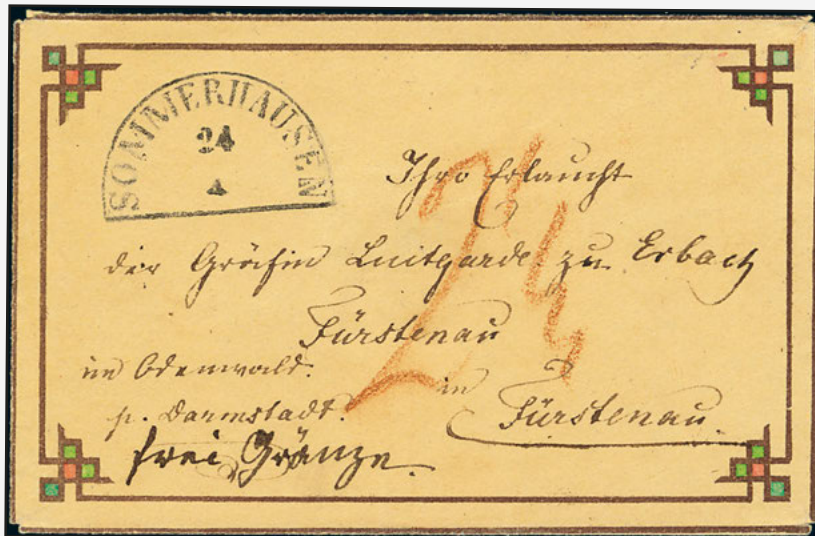 SOMMERHAUSEN
24
4
Ihro Erlaucht
der Gräfin Luitgarde zu Erbach
Fürstenau
im Odenwald.
p. Darmstadt.
in
Fürstenau.
frei Gränze.